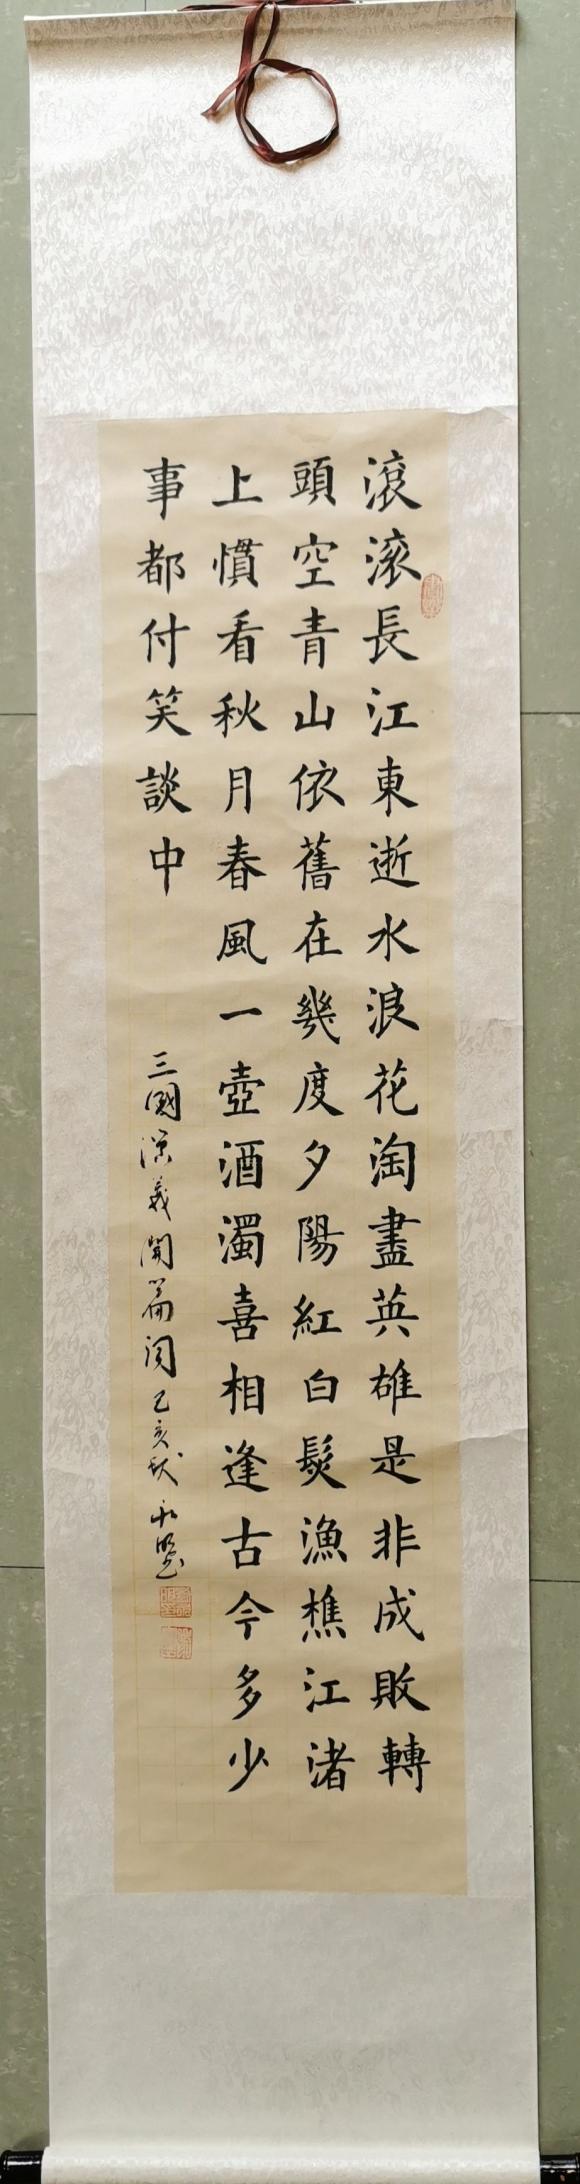 滾滾長江東逝水浪花淘盡英雄是非成敗轉
頭空青山依舊在幾度夕陽紅白髮漁樵江渚
上慣看秋月春風一壺酒濁喜相逢古今多少
事都付笑談中
三國演義開篇詞己亥秋永堅